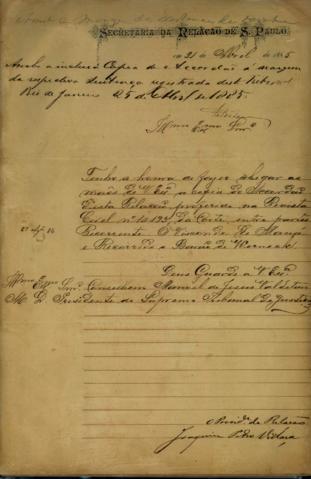 Secretaria da Relação de S. Paulo
21 de Abril de 1885
Anch a inclusa Copia do Accordão á margem
da respectiva sentença registrada deste tribunal
Rio de Janeiro 25 de Abril de 1885.
Illmo e Exmo Snr
Tenho a honra de fazer chegar ás
mãos de V. Exª a copia do Accordão
desta Relação proferido na Revista
Civel nº 10193 da Côrte, entre partes
Recorrente O Visconde de Mauá
e Recorrido o Barão de Werneck
Deus Guarde a V. Exª
Illmo Exmo Snr. Conselheiro Manoel de Jesus Valdetaro
M. D. Presidente do Supremo Tribunal de Justiça
O Presidte da Relação
Joaquim Pedro Villaça